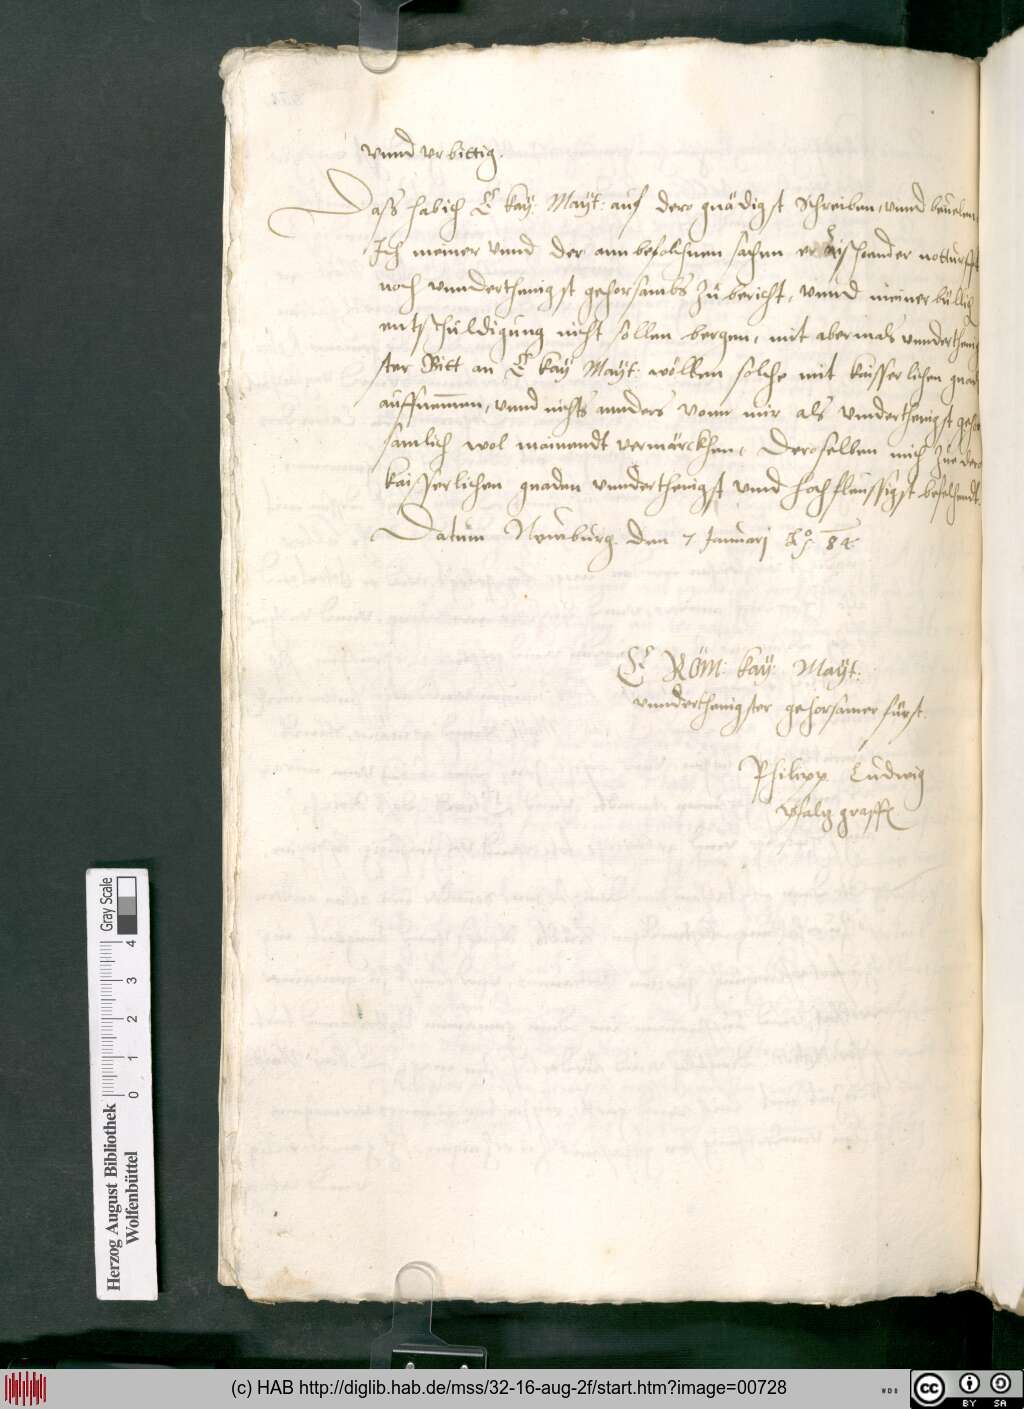 vnnd vrbiettig.
Dass hab ich E kay: Mayt: auf dero gnädigst schreiben, vnnd beuelen,
Ich meiner vnnd der ann befolchnen sachen notturfft
noch vnnderthenigst gehorsambs zu bericht, vnnd meiner billig
entschuldigung nicht sollen bergen, mit abermals vnnderthenig
ster Bitt an E kay Mayt: wöllen solche mit kaisserlichen gnad
auffnemmen, vnnd nichts annders vonn mir als vnnderthenigst gehor
samlich wol mainendt vermärckhen, Deroselben mich zue dero
kaisserlichen gnaden vnnderthenigst vnnd hochfleissigst befelhendt.
Datum Newburg. den 7 Januarj Ao 84.
E Röm: kay: Mayt:
vnnderthenigster gehorsamer fürst.
Philipp Ludwig
pfaltzgraff
Gray Scale
0 1 2 3 4
Herzog August Bibliothek
Wolfenbüttel
(c) HAB http://diglib.hab.de/mss/32-16-aug-2f/start.htm?image=00728
WDB
cc BY SA